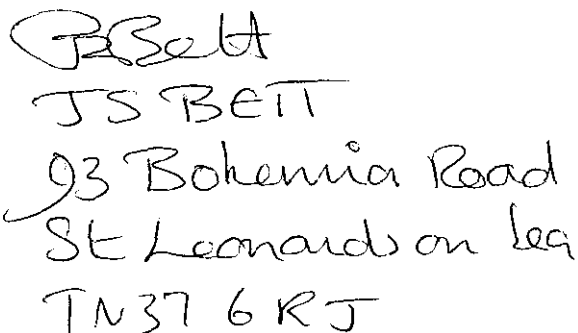 JSBett
JS BETT
93 Bohemia Road
St Leonards on Sea
TN37 6RJ